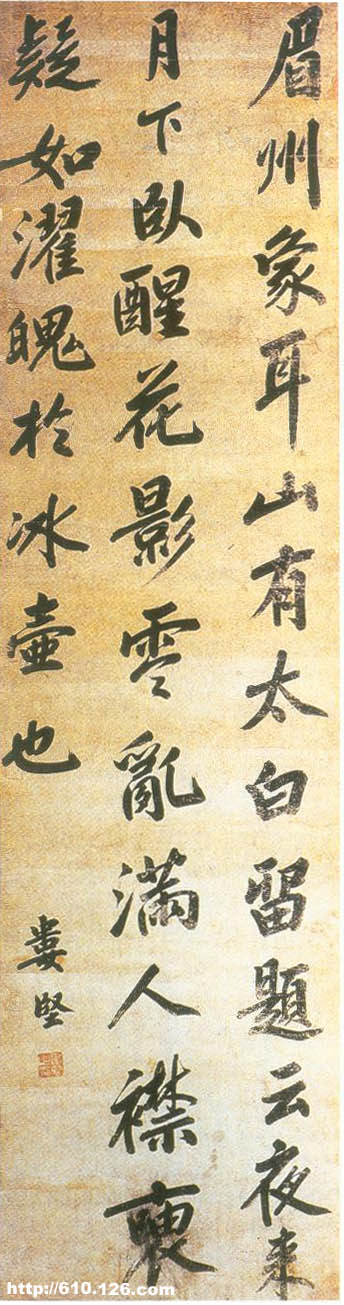 眉州象耳山有太白留題云夜来
月下臥醒花影零亂滿人襟裏
疑如濯魄於冰壺也
婁堅
http://610.126.com